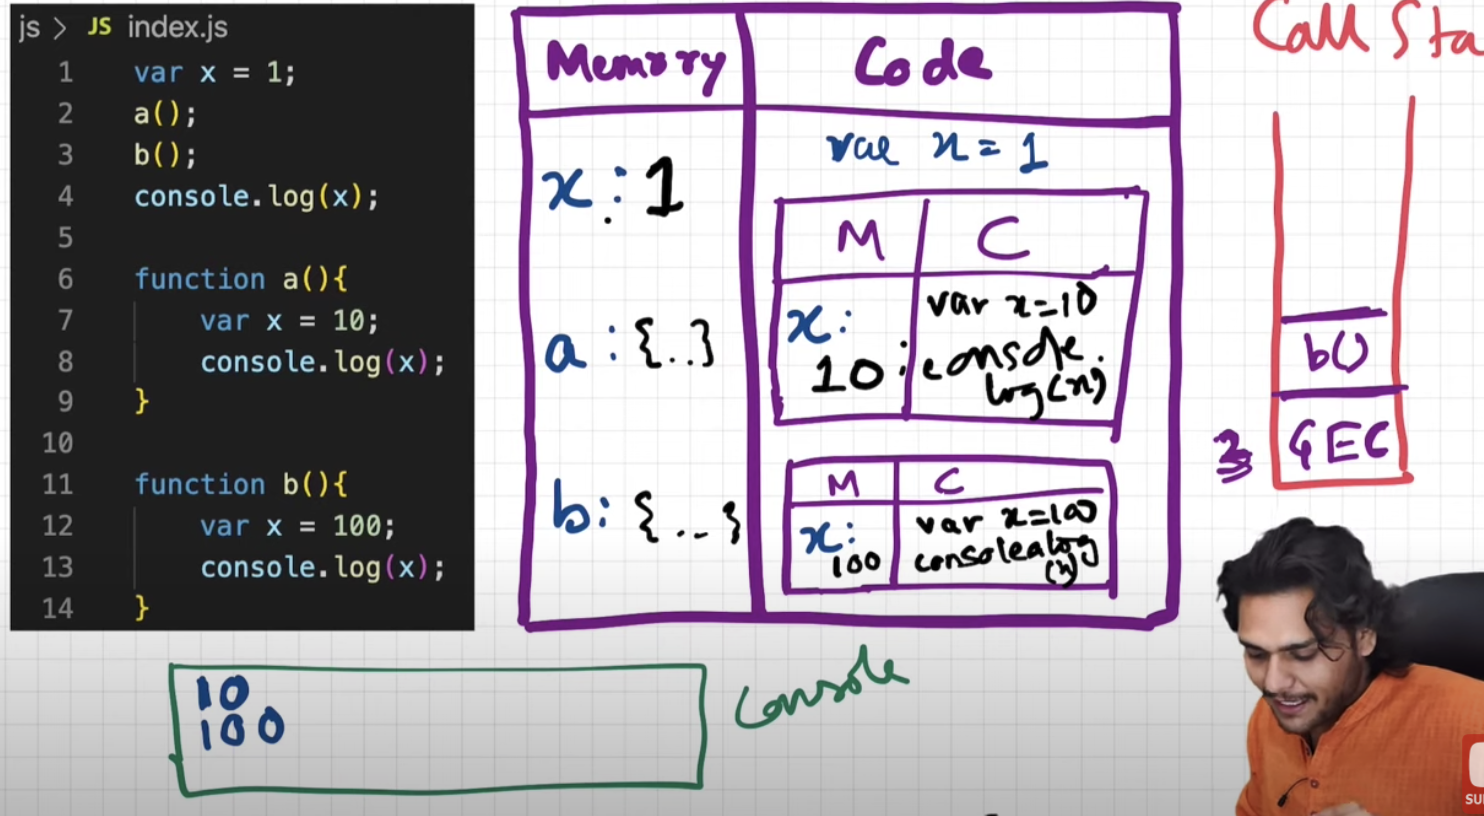 js > JS index.js
1 var x = 1;
2 a();
3 b();
4 console.log(x);
5
6 function a(){
7 var x = 10;
8 console.log(x);
9 }
10
11 function b(){
12 var x = 100;
13 console.log(x);
14 }
Memory
Code
x : 1
a : {..}
b: {...}
var x = 1
M C
x:
10
var x=10
console.
log(x)
M C
x:
100
var x=100
console.log
(x)
Call Sta
b()
GEC
10
100
Console
SU